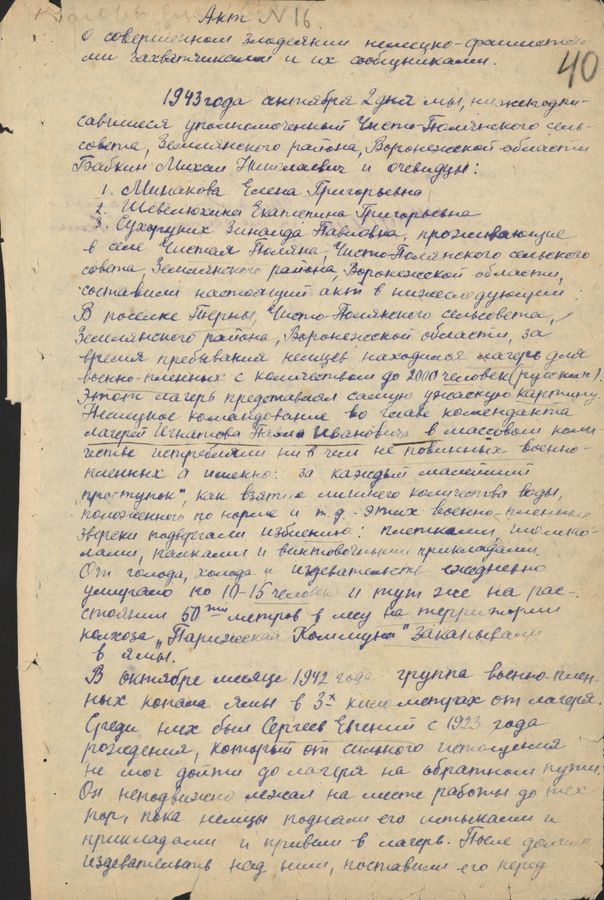 Акт №16.
о совершенном злодеянии немецко-фашистски
ми захватчиками и их сообщниками.
40
1943 года октября 2 дня мы, нижеподпи-
савшиеся уполномоченный Чисто-Полянского сель-
совета, Землянского района, Воронежской области
Бабкин Михаил Николаевич и очевидцы:
1. Минакова Елена Григорьевна
2. Шевелюхина Екатерина Григорьевна
3. Сухоруких Зинаида Павловна, проживающие
в селе Чистая Поляна, Чисто-Полянского сельского
совета, Землянского района, Воронежской области,
составили настоящий акт в нижеследующем:
В поселке Терны, Чисто-Полянского сельсовета,
Землянского района, Воронежской области, за
время пребывания немцев находился лагерь для
военно-пленных с количеством до 2000 человек (русских).
Этот лагерь представлял самую ужасную картину.
Немецкое командование во главе коменданта
лагерей Игнатова Ивановича в массовом коли-
честве истребляли ни в чем не повинных военно-
пленных а именно: за каждый малейший
"проступок", как взятие лишнего количества воды,
положенного по норме и т.д. этих военно-пленных
зверски подвергали избиению: плетками, шомпо-
лами, палками и винтовочными прикладами.
От голода, холода и издевательств ежедневно
умирало по 10-15 человек и тут же на рас-
стоянии 50ти метров в лесу на территории
колхоза "Парижская Коммуна" закапывали
в ямы.
В октябре месяце 1942 года группа военно-плен-
ных копала ямы в 3х километрах от лагеря.
Среди них был Сергеев Евгений с 1923 года
рождения, который от сильного истощения
не мог дойти до лагеря на обратном пути.
Он неподвижно лежал на месте работы до тех
пор, пока немцы подняли его штыками и
прикладами и привели в лагерь. После долгих
издевательств над ним, поставили его перед